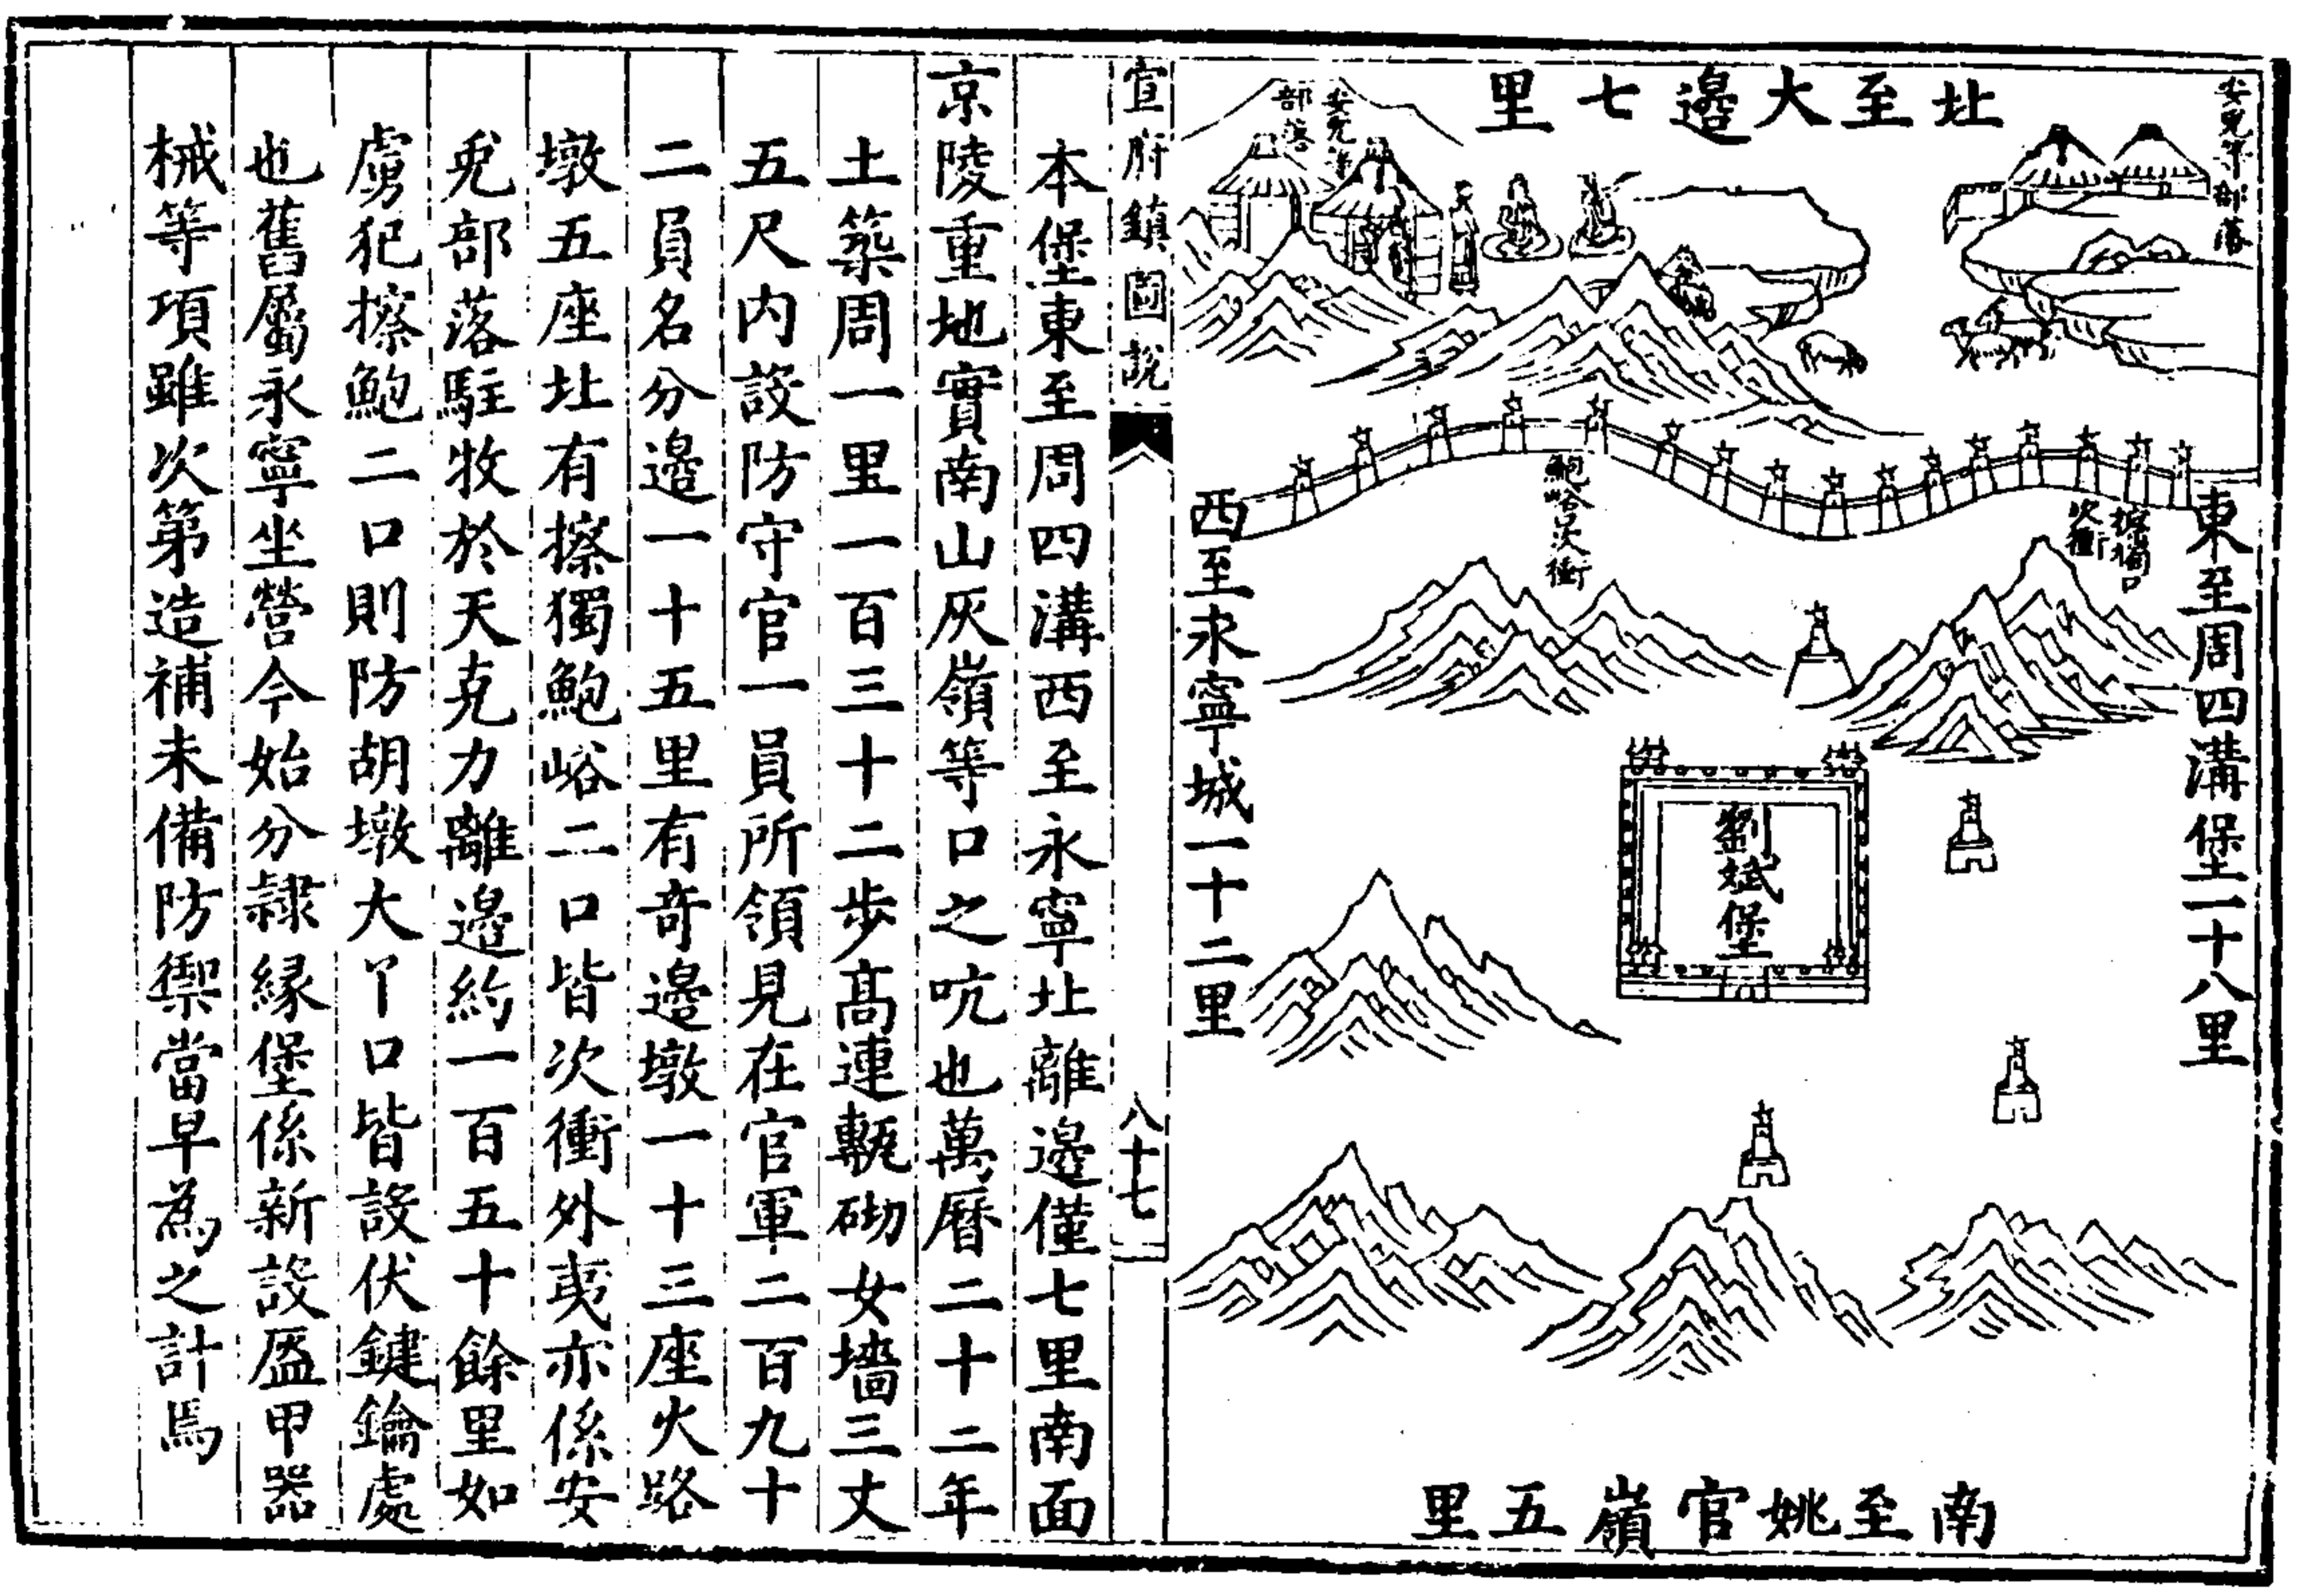 安兔等部落
北至大邊七里
安兔等
部落
東至周四溝堡一十八里
擦獨口
次衝
鮑峪口次衝
西至永寧城一十二里
劉斌堡
南至姚官嶺五里
宣府鎮圖說
八十七
本堡東至周四溝西至永寧北離邊僅七里南面
京陵重地實南山灰嶺等口之吭也萬曆二十二年
土築周一里一百三十二步髙連甎砌女墻三丈
五尺内設防守官一員所領見在官軍二百九十
二員名分邊一十五里有竒邊墩一十三座火路
墩五座北有擦獨鮑峪二口皆次衝外夷亦係安
兔部落駐牧於天克力離邊約一百五十餘里如
虜犯擦鮑二口則防胡墩大丫口皆設伏鍵鑰處
也舊屬永寧坐營今始分隸縁堡係新設盔甲器
械等項雖次第造補未備防禦當早為之計焉